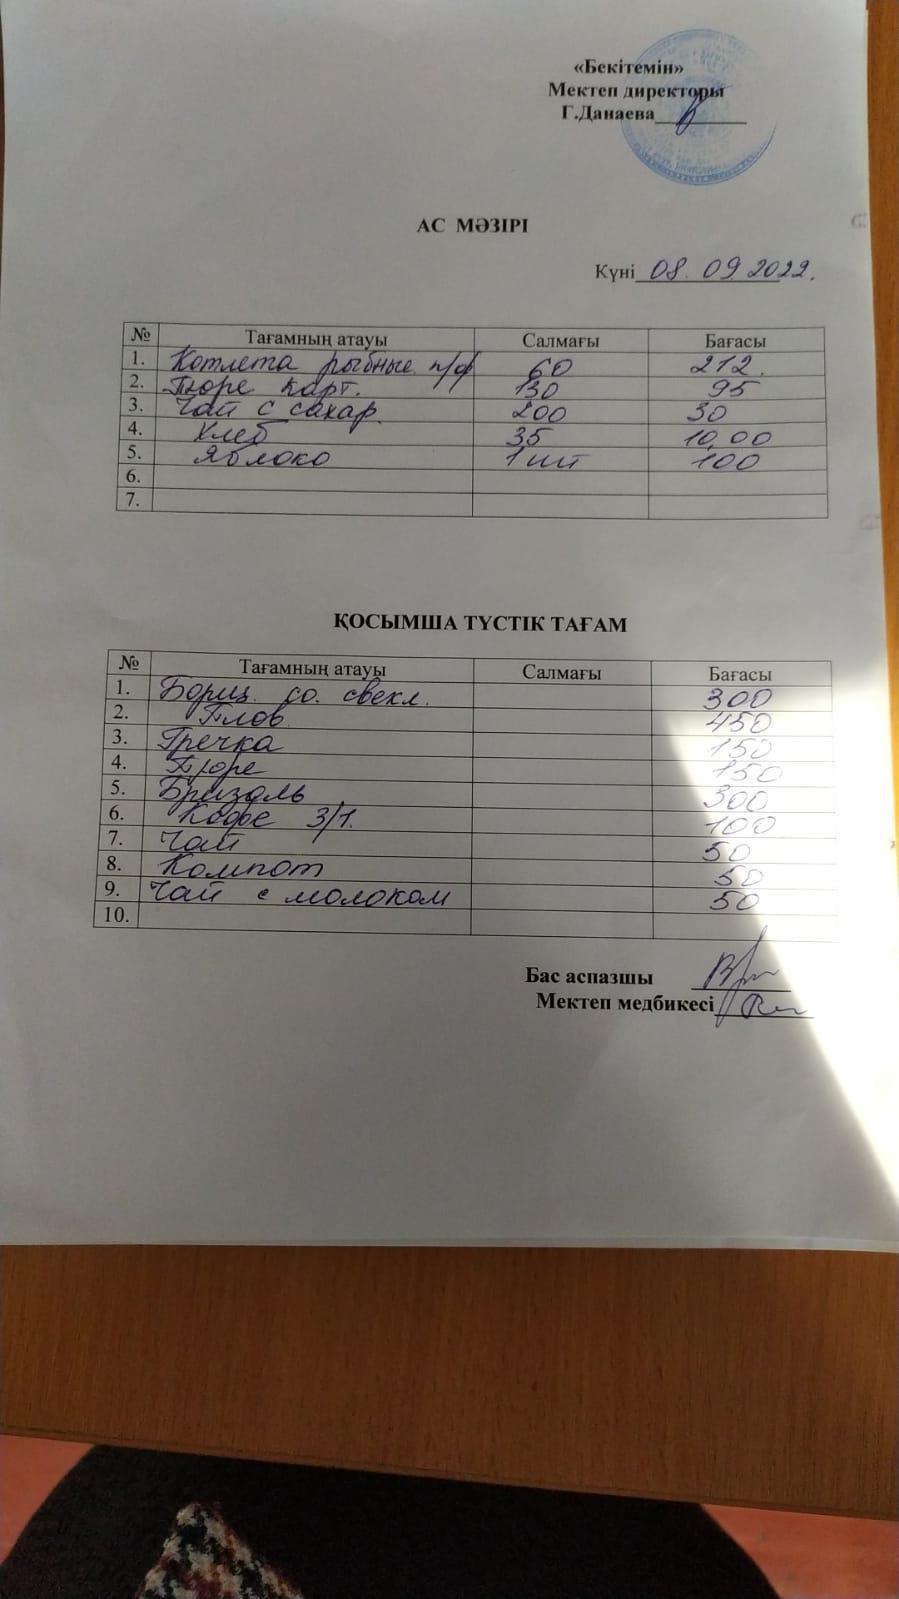 «Бекітемін»
Мектеп директоры
Г.Данаева__________
АС МӘЗІРІ
Күні 08.09 2022.
№ Тағамның атауы Салмағы Бағасы
1. Котлета рыбные п/ф 60 212.
2. Пюре карт. 130 95
3. Чай с сахар. 200 30
4. Хлеб 35 10,00
5. Яблоко 1 шт 100
6.
7.
ҚОСЫМША ТҮСТІК ТАҒАМ
№ Тағамның атауы Салмағы Бағасы
1. Борщ со. свекл. 300
2. Плов 450
3. Гречка 150
4. Пюре 150
5. Бризоль 300
6. Кофе 3/1. 100
7. Чай 50
8. Компот 50
9. Чай с молоком 50
10.
Бас аспазшы
Мектеп медбикесі